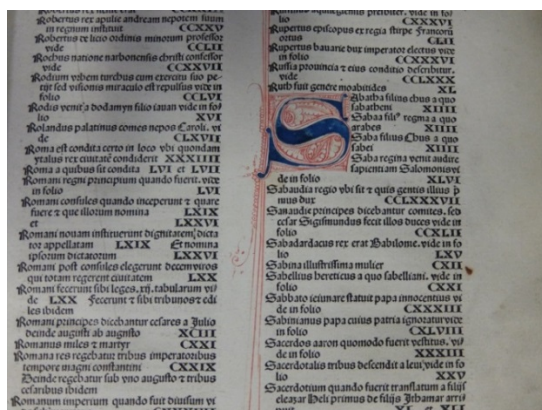 in regnum instituit CCXXV
Robertus de licio ordinis minorum professor
vide CCLII
Rochus natione narbonensis christi confessor
vide CCXXVII
Rodium vrbem turchus cum exercitu suo pe
tijt sed visionis miraculo est repulsus vide in
folio CCLVI
Rodus venit a dodamyn filio iauan vide in fo
lio XVI
Rolandus palatinus comes nepos Caroli. vi
de CLXVII
Roma est condita certo in loco vbi quondam
ytalus rex ciuitatē condiderit XXXIIII
Roma a quibus sit condita LVI et LVII
Romani regni principium quando fuerit. vide
in folio LVI
Romani consules quando inceperunt & quare
fuere & que illorum nomina LXIX
et LXXVI
Romani nouam instruerunt dignitatem dicta
tor appellatam LXIX Et nomina
ipsorum dictatorum LXXVI
Romani post consules elegerunt decemviros
qui totam regerent ciuitatem LXX
Romani fecerunt sibi leges. xij. tabularum vi
de LXX Fecerunt & sibi tribunos & edi
les ibidem
Romani principes dicebantur cesares a Julio
deinde augusti ab augusto XCIII
Romanus miles & martyr CXXI
Romana res regebatur tribus imperatoribus
tempore magni constantini CXXIX
Deinde regebatur sub vno augusto & tribus
cesaribus ibidem
Romanum imperium quando fuit diuisum vi
CXXXVI
Rupertus episcopus ex regia stirpe francorū
ortus CLII
Rupertus bauarie dux imperator electus vide
in folio CCXXXVI
Russia prouincia & eius conditio describitur.
vide CCLXXX
Ruth fuit genere moabitides XL
Sabatha filius chus a quo
sabatheni XIIII
Sabaa filiꝰ regma a quo
arabes XIIII
Saba filius Chus a quo
sabei XIIII
Saba regina venit audire
sapientiam Salomonis vi
de in folio XLVI
Sabaudia regio vbi sit & quis gentis illius p̄
mus dux CCLXXXVII
Sanaudie principes dicebantur comites. sed
cesar Sigismundus fecit illos duces vide in
folio CCXLII
Sabadardacus rex erat Babilonie. vide in fo
lio LXV
Sabina illustrissima mulier CXII
Sabellius hereticus a quo sabelliani. vide in
folio CXXI
Sabbato ieiunare statuit papa innocentius vi
de in folio CXXXIII
Sabinianus papa cuius patria ignoratur vide
in folio CXLVIII
Sacerdos aaron quomodo fuerit vestitus. vi
de in folio XXXIII
Sacerdotalis tribus descendit a leui vide in fo
lio XXV
Sacerdotium quando fuerit translatum a filijs
eleazar Heli primus de filijs Ithamar arri